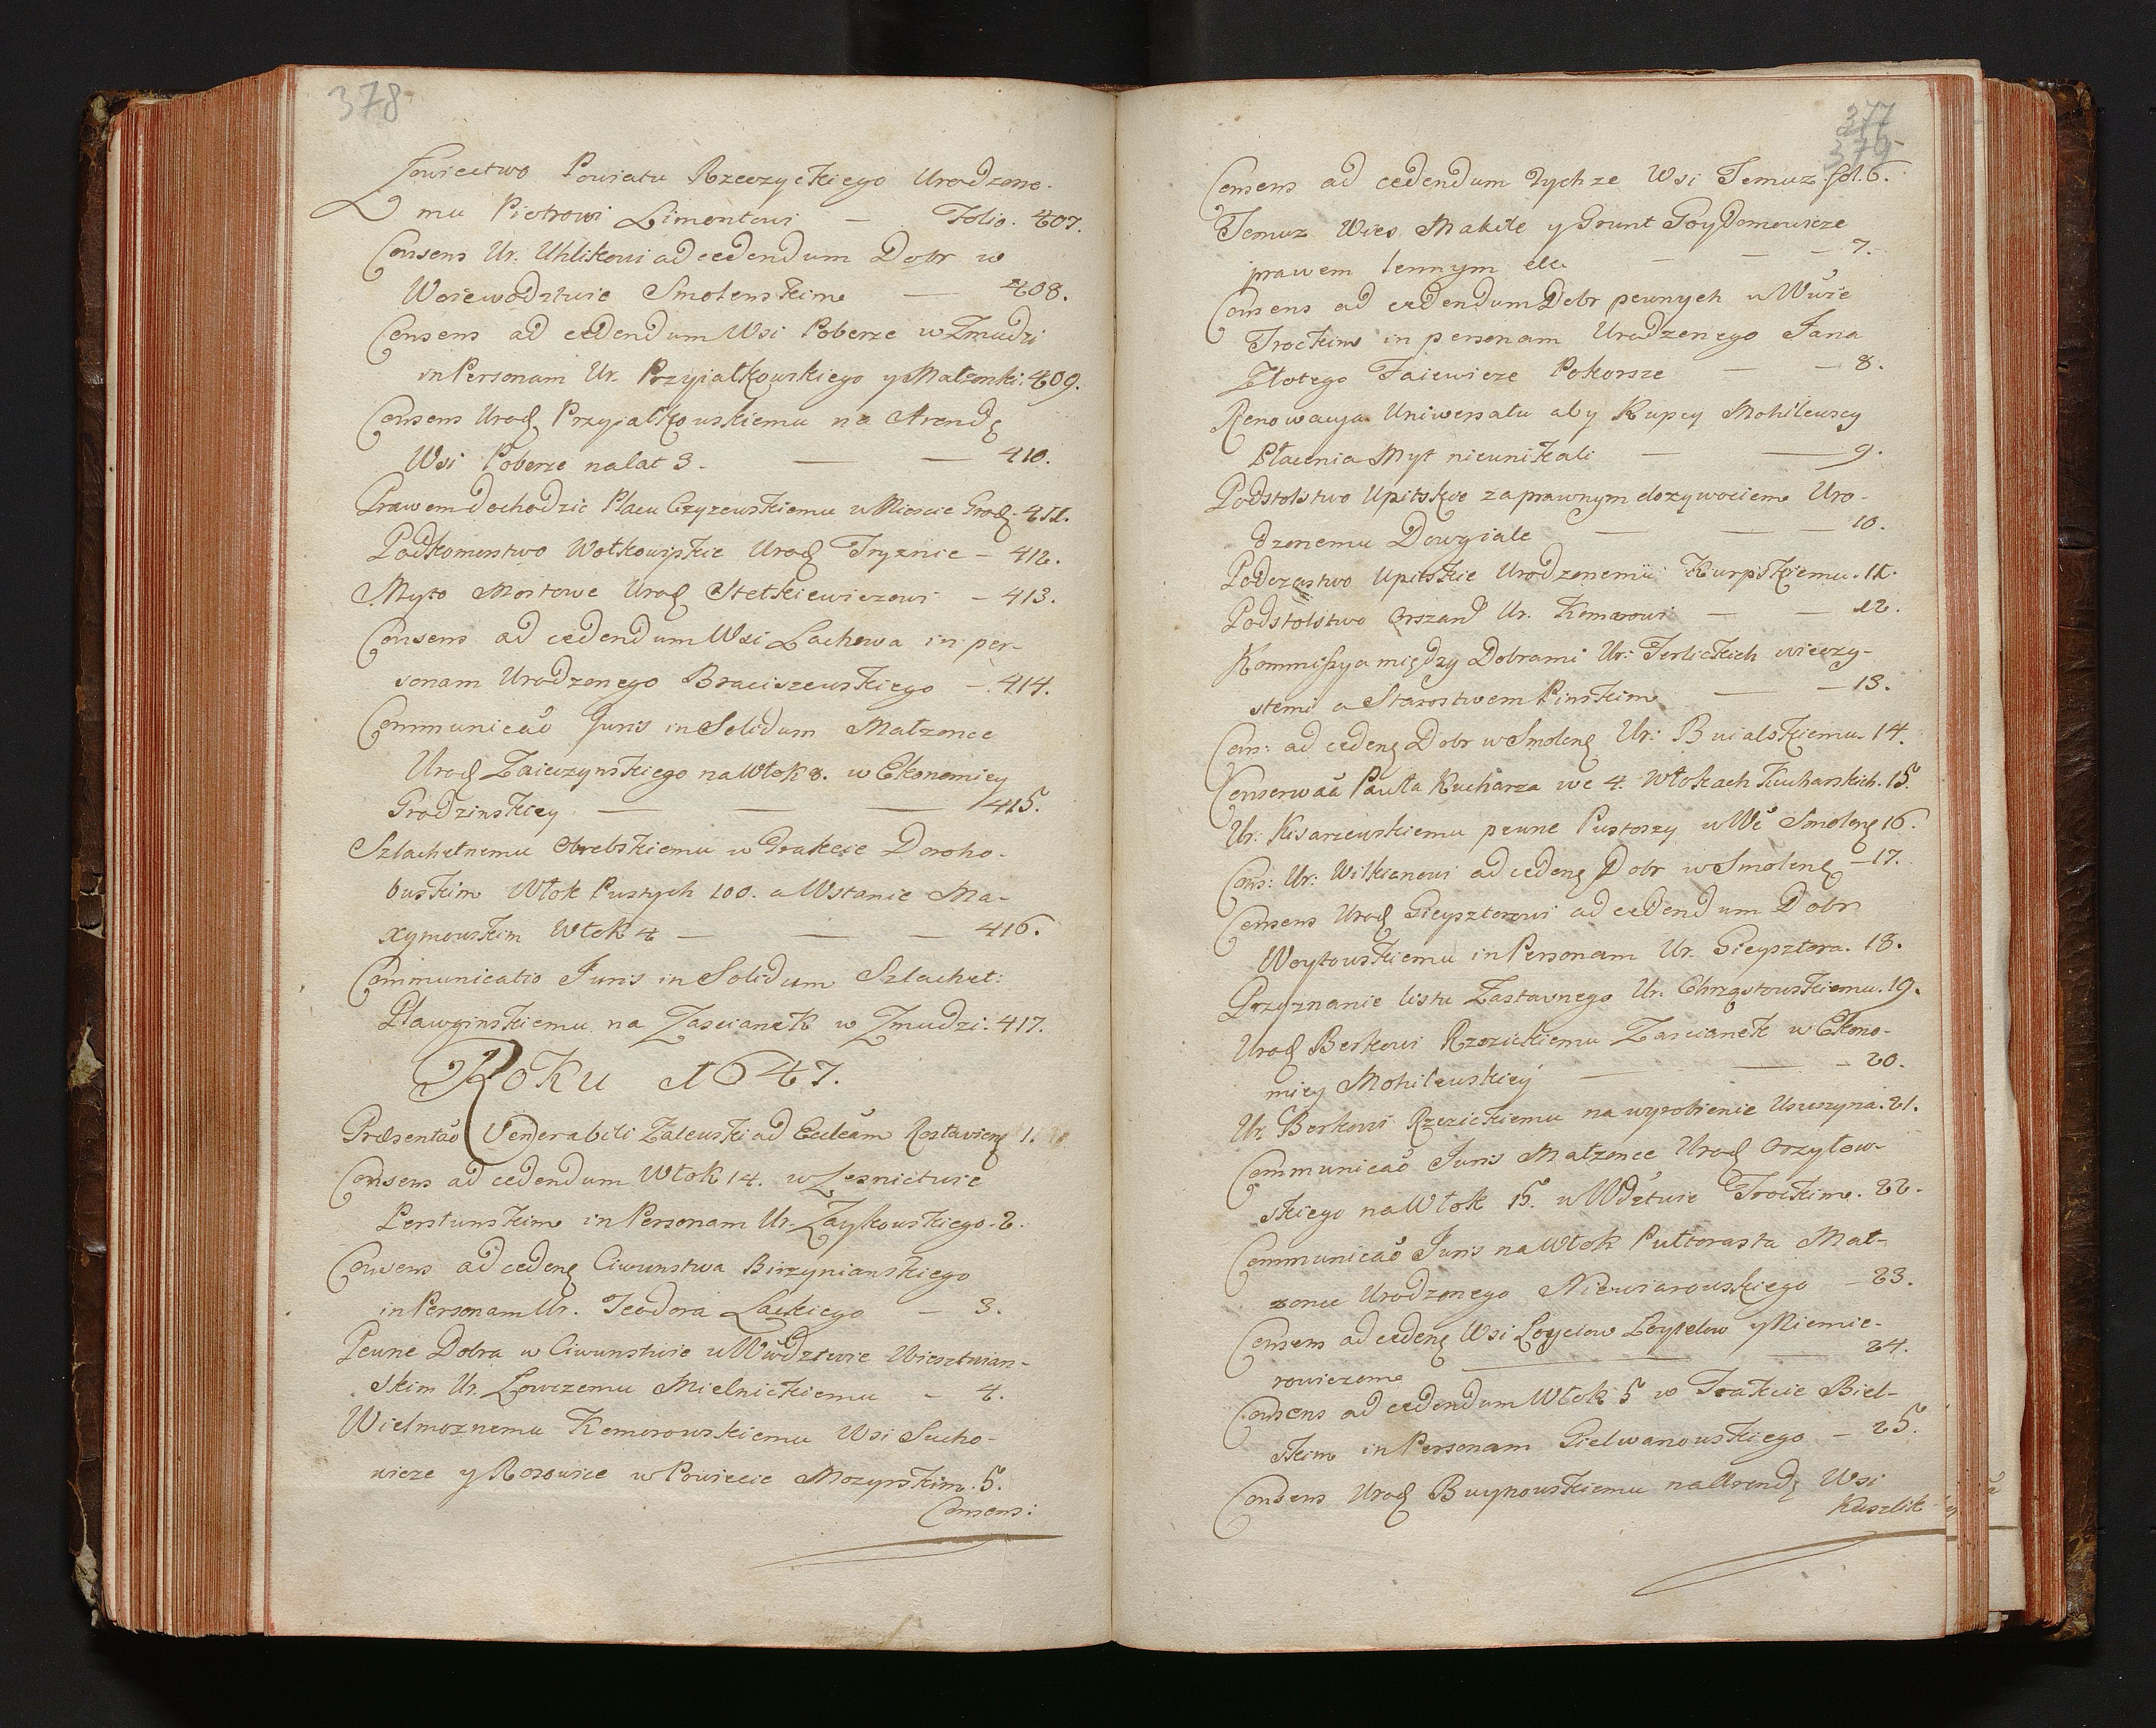 378
Łowiectwo Powiatu Rzeczyckiego Urodzone-
mu Piotrowi Limontowi — Folio. 407.
Consens Ur: Uhlikowi ad cedendum Dobr w
Woiewodztwie Smolenskim — 408.
Consens ad cedendum Wsi Poberze w Zmudzi
in Personam Ur. Przyiałkowskiego y Małzonki. 409.
Consens Urod Przyiałkowskiemu na Arendę
Wsi Poberze na lat 3. — — 410.
Prawem dochodzic Placu Czyzewskiemu w Miescie Grod. 411.
Podkomorstwo Wołkowiskie Urod Tryznie — 412.
Myto Mostowe Urod Stetkiewiczowi — 413.
Consens ad cedendum Wsi Lachowa in per-
sonam Urodzonego Braciszewskiego — 414.
Communicao Juris in Solidum Małzonce
Urod Zaiezynskiego na Włok 8. w Ekonomiey
Grodzinskiey — — — 415.
Szlachetnemu Obrebskiemu w Trakcie Doroho-
buskim Włok Pustych 100. a W Stanie Ma-
xymowskim Włok 4 — — — 416.
Communicatio Juris in Solidum Szlachet:
Pławginskiemu na Zascianek w Zmudzi. 417.
Roku 1647.
Præsentao Venerabili Zalewski ad Eccleam Rostawien 1.
Consens ad cedendum Włok 14. w Lesnictwie
Perstunskim in Personam Ur. Zaykowskiego. 2.
Consens ad ceden Ciwunstwa Birzynianskiego
in Personam Ur. Teodora Lackiego — 3.
Pewne Dobra w Ciwunstwie u Wwdztwie Wiesztwian-
skim Ur. Łowczemu Mielnickiemu — 4.
Wielmoznemu Komorowskiemu Wsi Sucho-
wicze y Rosowice w Powiecie Mozyrskim. 5.
Consens:
377
379
Consens ad cedendum tychze Wsi Temuz. fol. 6.
Temuz Wies Makile y Grunt Poydomowicze
prawem lennym etc — — — 7.
Consens ad cedendum Dobr pewnych w Wwie
Trockim in personam Urodzonego Jana
Złotego Faiewicze Pokorsze — — 8.
Renowacya Uniwersału aby Kupcy Mohilewscy
Płacenia Myt nieunikali — — 9.
Podstolstwo Upitskie za prawnym dozywociem Uro-
dzonemu Dowgiale — — — 10.
Podczastwo Upitskie Urodzonemu Kurpskiemu. 11.
Podstolstwo Orszan Ur. Komarowi — — 12.
Kommissya między Dobrami Ur: Terlickich wieczy-
stemi a Starostwem Pinskim — — 13.
Cons: ad ceden Dobr w Smolen Ur: Buialskiemu. 14.
Conserwaa Pawła Kucharza we 4. Włokach Kucharskich. 15.
Ur: Kisarzewskiemu pewne Pustoszy w Wč Smolen 16.
Cons: Ur: Wilkianowi ad ceden Dobr w Smolen — 17.
Consens Urod Gieysztorowi ad cedendum Dobr
Woytowskiemu in Personam Ur. Gieysztora. 18.
Przyznanie listu Zastawnego Ur. Chrząstowskiemu. 19.
Urod Berkowi Rzezickiemu Zascianek w Ekono-
miey Mohilewskiey — — — 20.
Ur. Berkowi Rzezickiemu na wyrobienie Uszczyna. 21.
Communicao Juris Małzonce Urod Orzyłow-
skiego na Włok 15. w Wdztwie Trockim. 22.
Communicao Juris na Włok Pułtorasta Mał-
zonce Urodzonego Niewiarowskiego — 23.
Consens ad ceden Wsi Loyciow Loytelow y Niemie-
rowiczom — — 24.
Consens ad cedendum Włok 5 w Trakcie Biel-
skim in Personam Gielwanowskiego — 25.
Consens Urod Buynowskiemu na Arendę Wsi
Kuszlik